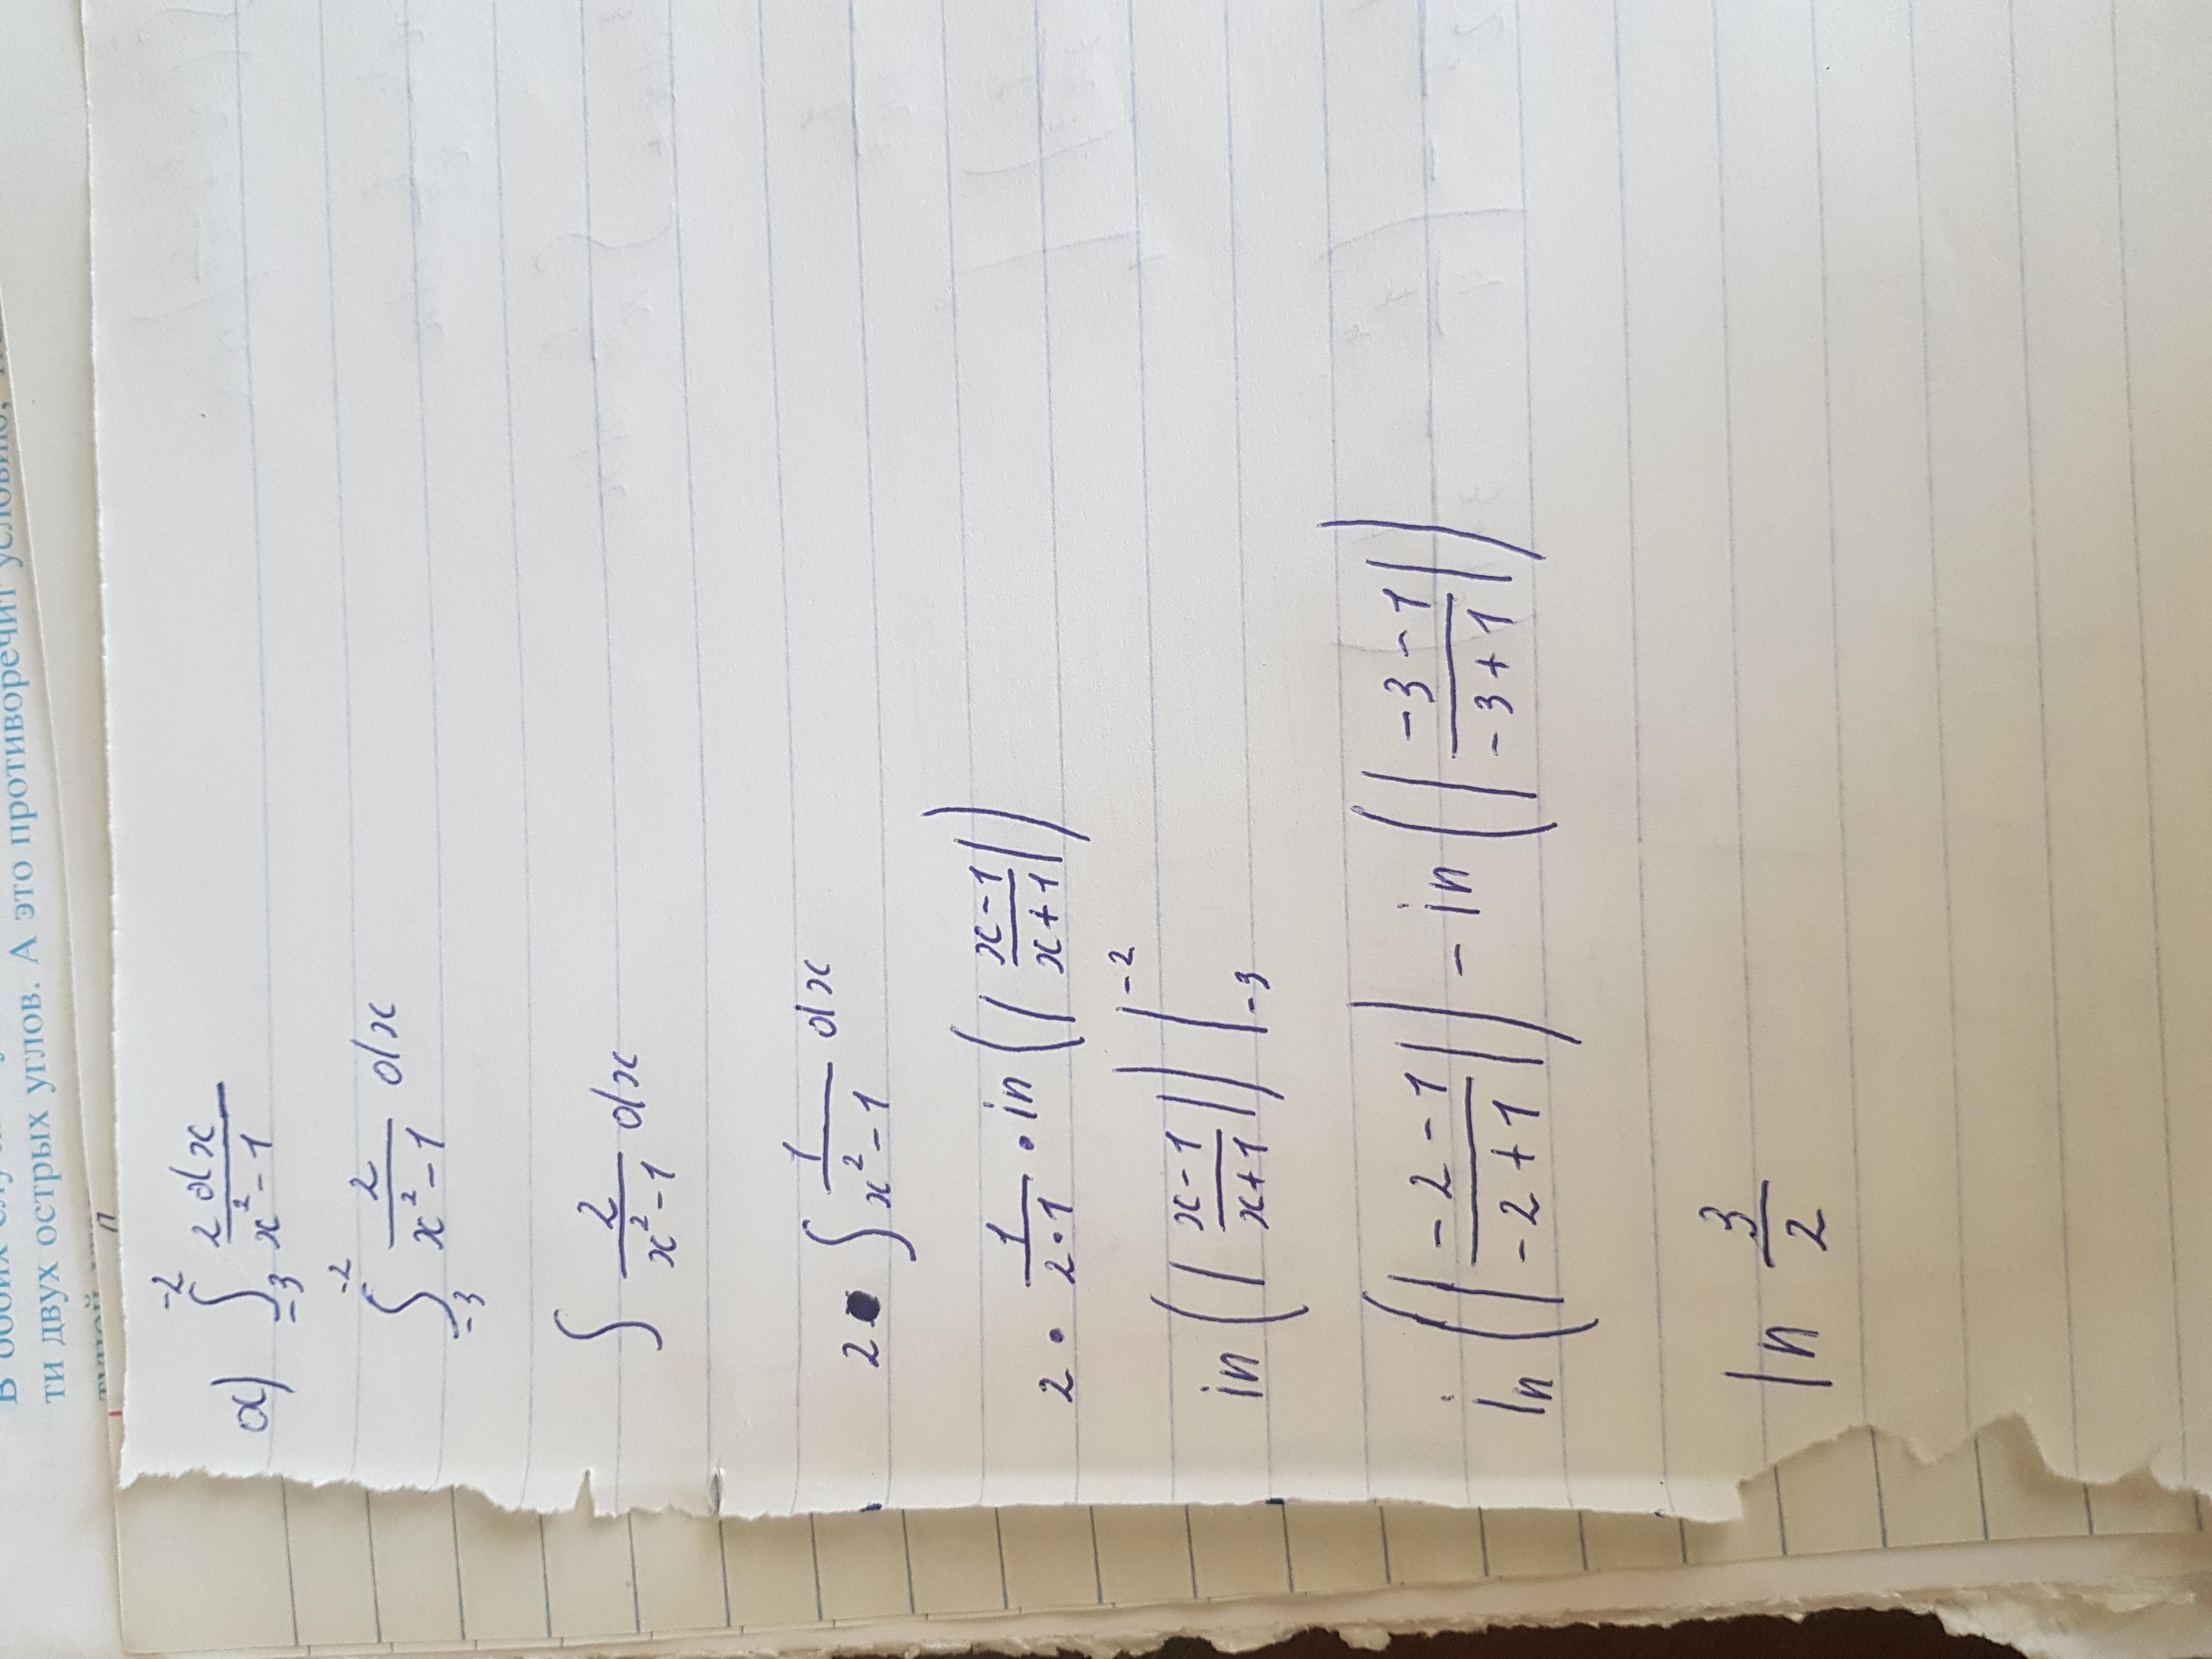 В обоих случа
ти двух острых углов. А это противоречит условию,
a) ∫_{-3}^{-2} \frac{2dx}{x²-1}
∫_{-3}^{-2} \frac{2}{x²-1} dx
∫ \frac{2}{x²-1} dx
2 ∫ \frac{1}{x²-1} dx
2 · \frac{1}{2·1} · in (|\frac{x-1}{x+1}|)
in (|\frac{x-1}{x+1}|) |_{-3}^{-2}
ln (|\frac{-2-1}{-2+1}|) - in (|\frac{-3-1}{-3+1}|)
ln \frac{3}{2}